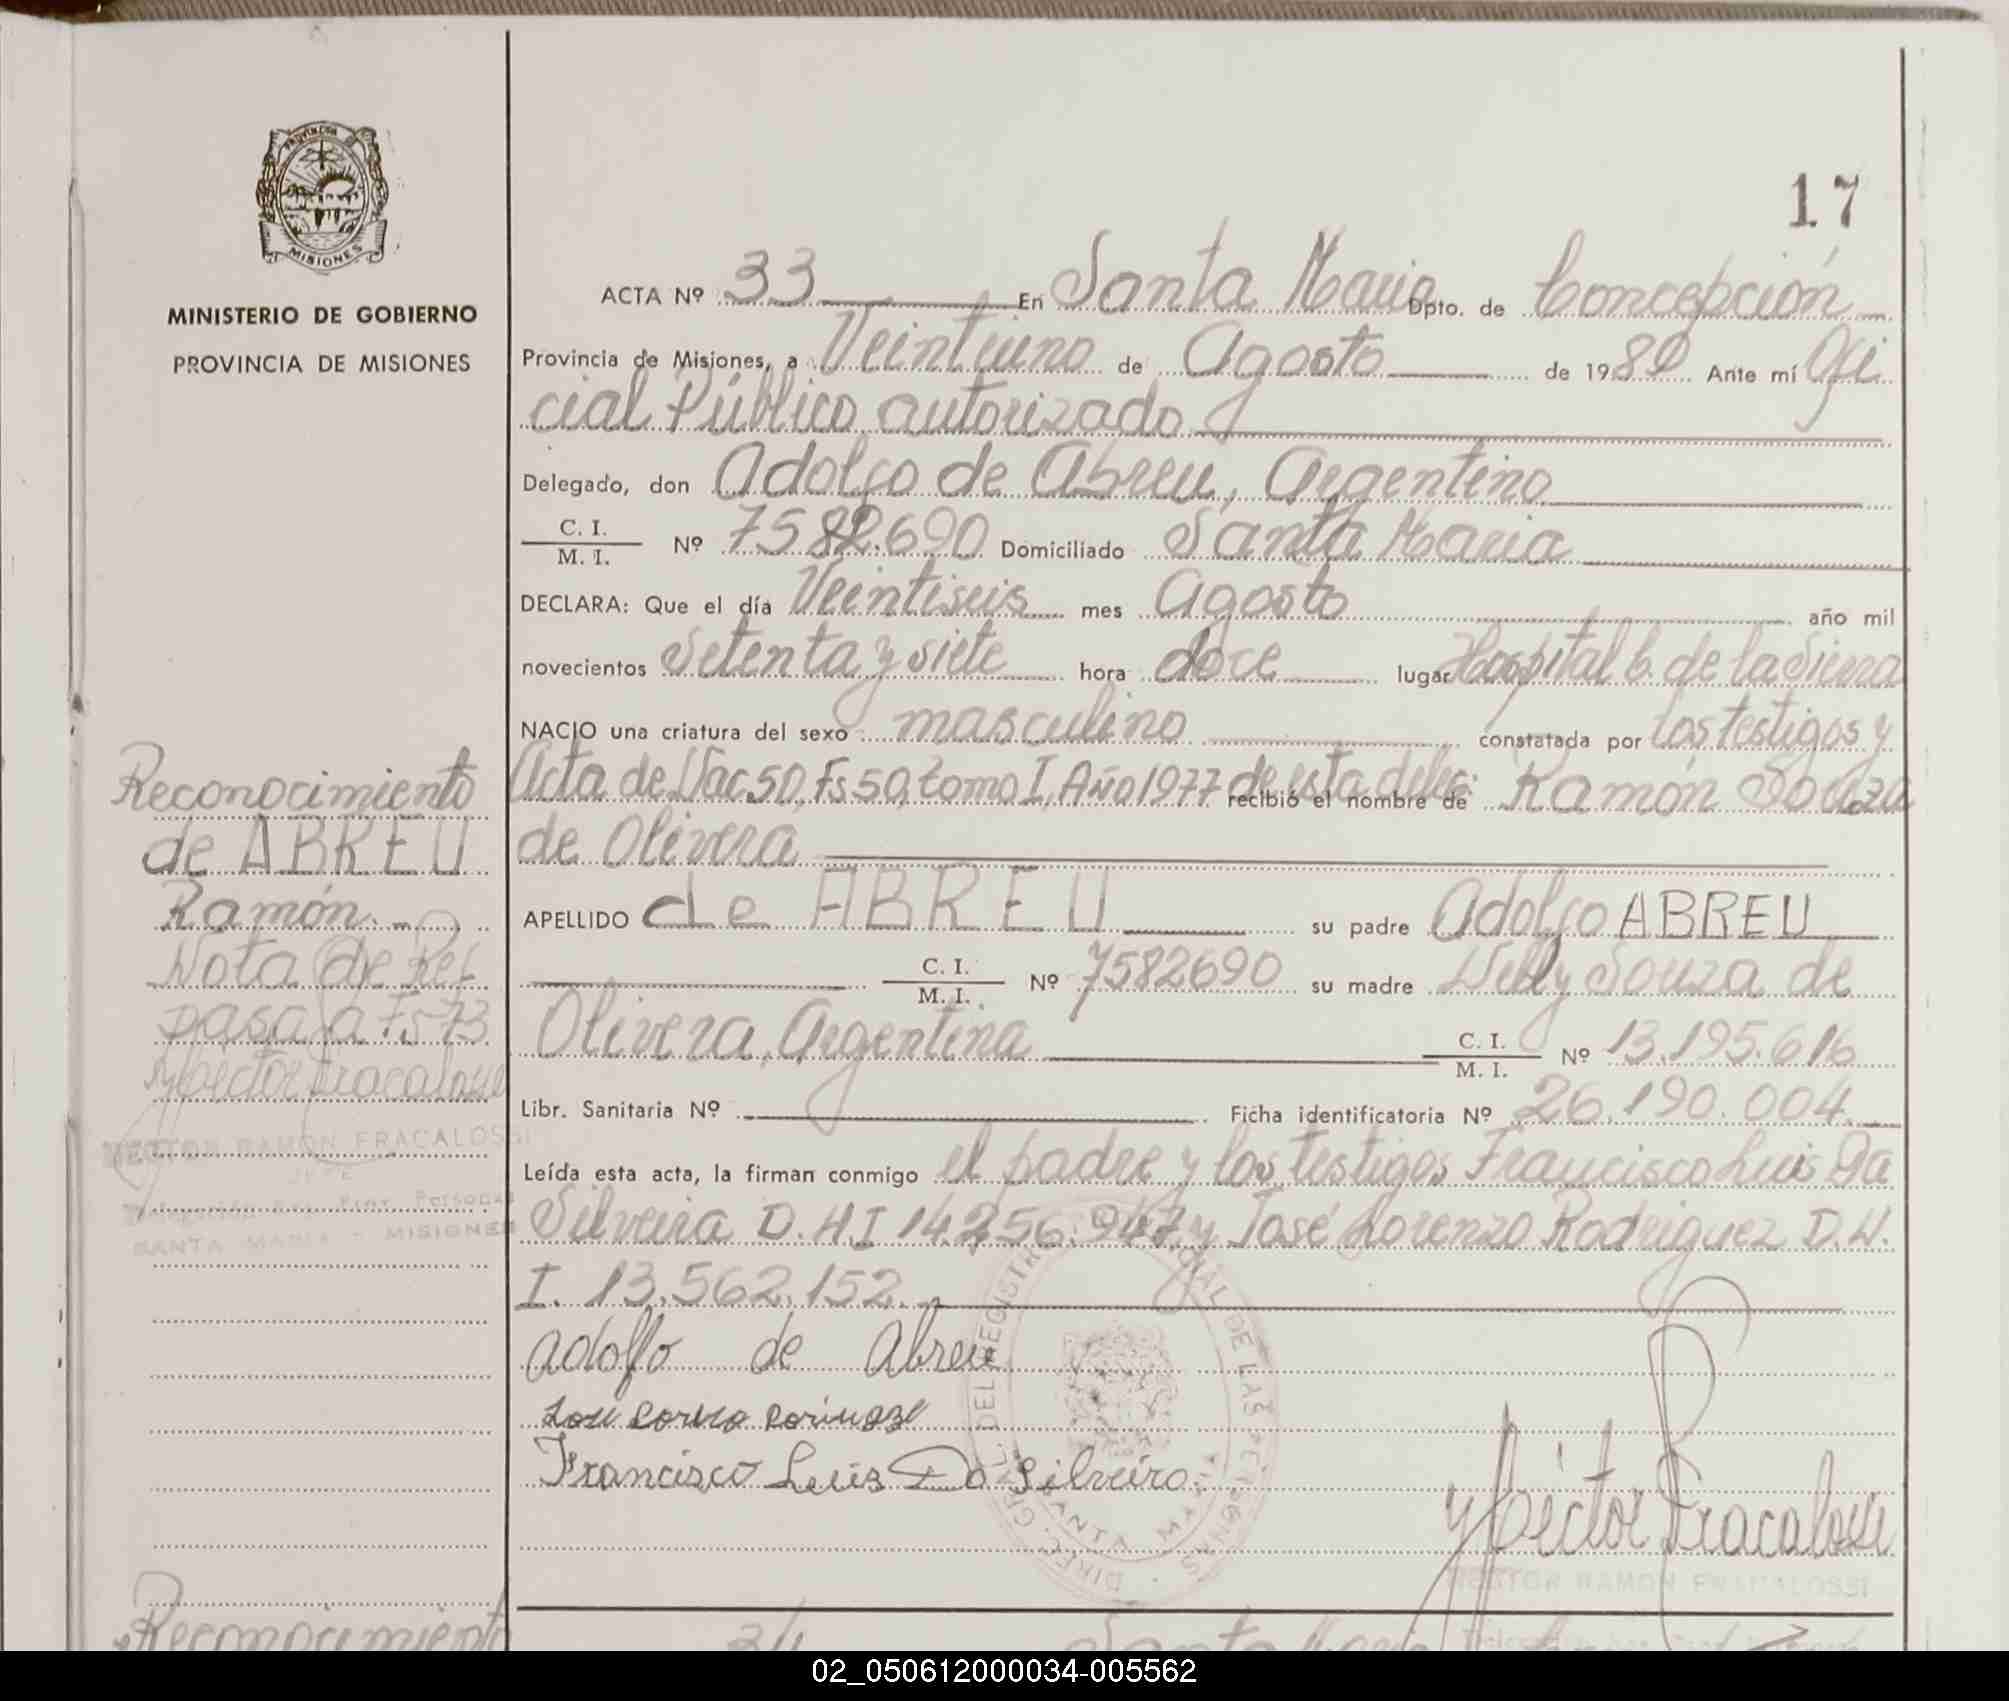 17
PROVINCIA
MISIONES
MINISTERIO DE GOBIERNO
PROVINCIA DE MISIONES
ACTA Nº 33 En Santa Maria Dpto. de Concepción
Provincia de Misiones, a Veintiuno de Agosto de 1980 Ante mí Ofi
cial Público autorizado
Delegado, don Adolfo de Abreu, Argentino
C. I.
M. I. Nº 7582.690 Domiciliado Santa Maria
DECLARA: Que el día Veintiseis mes Agosto año mil
novecientos Setenta y siete hora doce lugar Hospital C. de la Sierra
NACIO una criatura del sexo masculino constatada por los testigos y
Acta de Nac 50, Fs 50, tomo I, Año 1977 de esta deleg: recibió el nombre de Ramón Souza
de Olivera
APELLIDO de ABREU su padre Adolfo ABREU
C. I.
M. I. Nº 7582690 su madre Nelly Souza de
Olivera, Argentina C. I.
M. I. Nº 13.195.616
Libr. Sanitaria Nº Ficha identificatoria Nº 26.190.004
Leída esta acta, la firman conmigo el padre y los testigos Francisco Luis Da
Silveira D.N.I 14.256.947 y José Lorenzo Rodriguez D.N.
I. 13.562.152.
adolfo de Abreu
Francisco Luis Da Silveira
Héctor Fracalossi
HECTOR RAMON FRACALOSSI
Reconocimiento
de ABREU
Ramón.
Nota de Ref
pasa a Fs 73
Héctor Fracalossi
HECTOR RAMON FRACALOSSI
JEFE
SANTA MARIA - MISIONES
Reconocimiento
34 Santa Maria
02_050612000034-005562